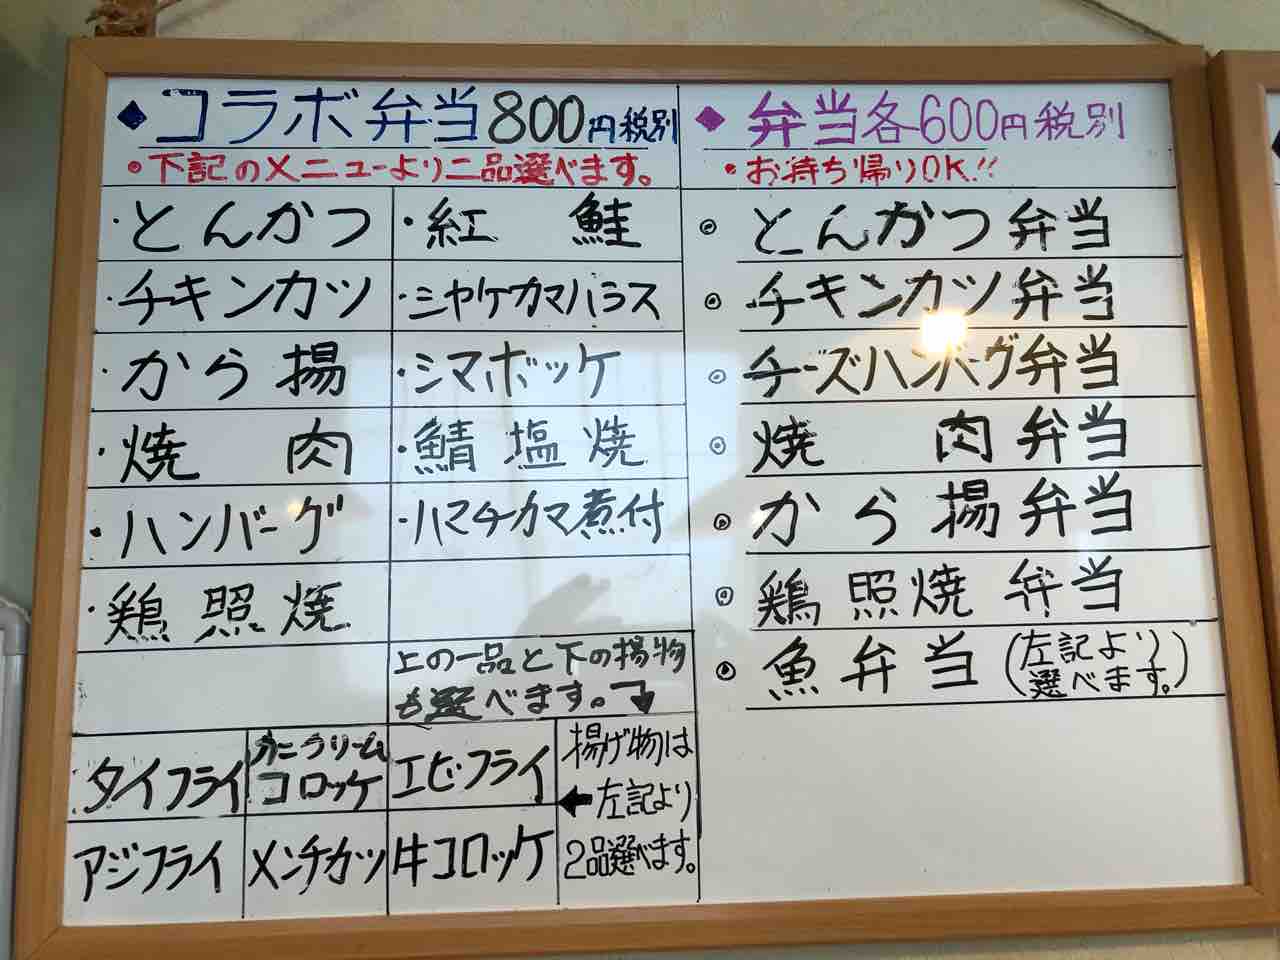 ◆コラボ弁当800円税別
・下記のメニューより二品選べます。
・とんかつ
・チキンカツ
・から揚
・焼 肉
・ハンバーグ
・鶏照焼
・紅 鮭
・シャケカマハラス
・シマホッケ
・鯖塩焼
・ハマチカマ煮付
上の一品と下の揚物
も選べます。
タイフライ
カニクリーム
コロッケ
エビフライ
アジフライ
メンチカツ
牛コロッケ
揚げ物は
←左記より
2品選べます。
◆弁当各600円税別
・お持ち帰りOK!!
◎とんかつ弁当
◎チキンカツ弁当
◎チーズハンバーグ弁当
◎焼 肉弁当
◎から揚弁当
◎鶏照焼弁当
◎魚弁当(左記より
選べます。)